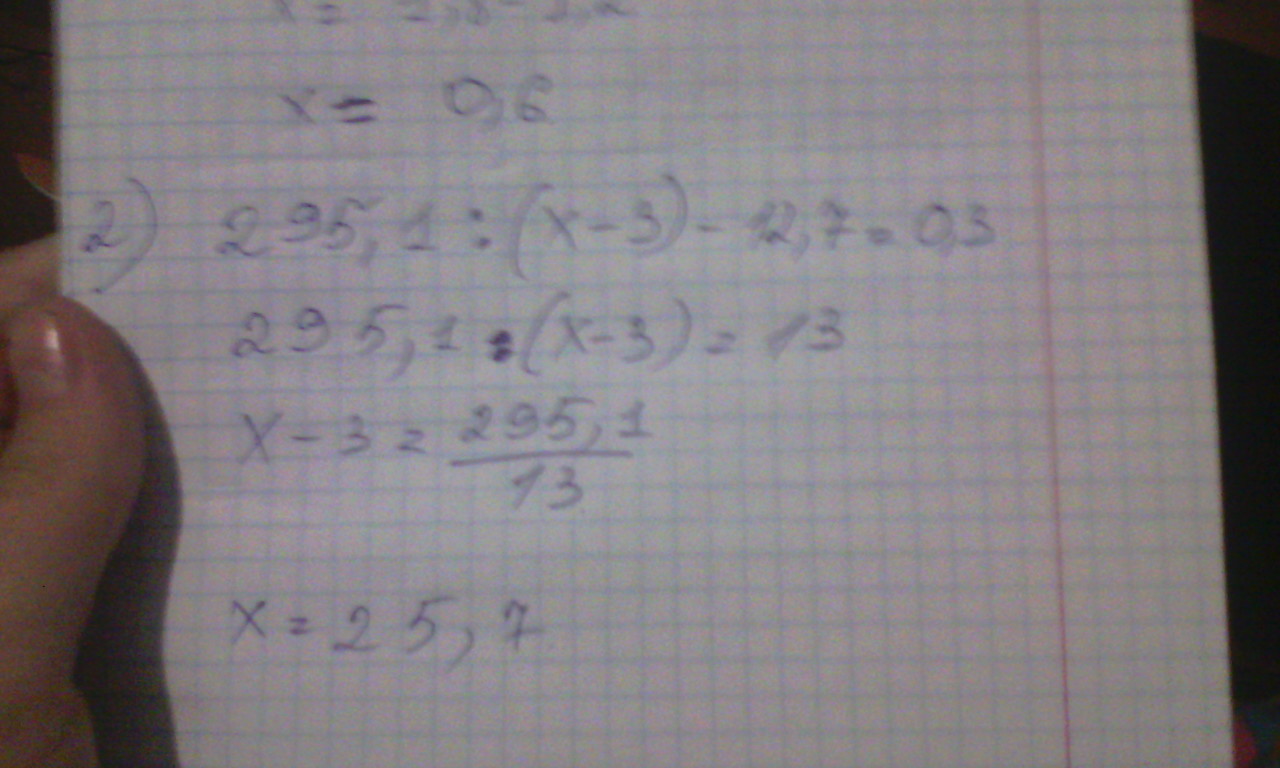 x = 1,8 - 1,2
x = 0,6
2) 295,1 : (x-3) - 12,7 = 0,3
295,1 : (x-3) = 13
x - 3 = 295,1 / 13
x = 25,7